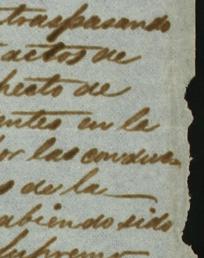 traspasando
actos de
pecto de
entes en la
or las conduc-
s de la
abiendo sido
Supremo